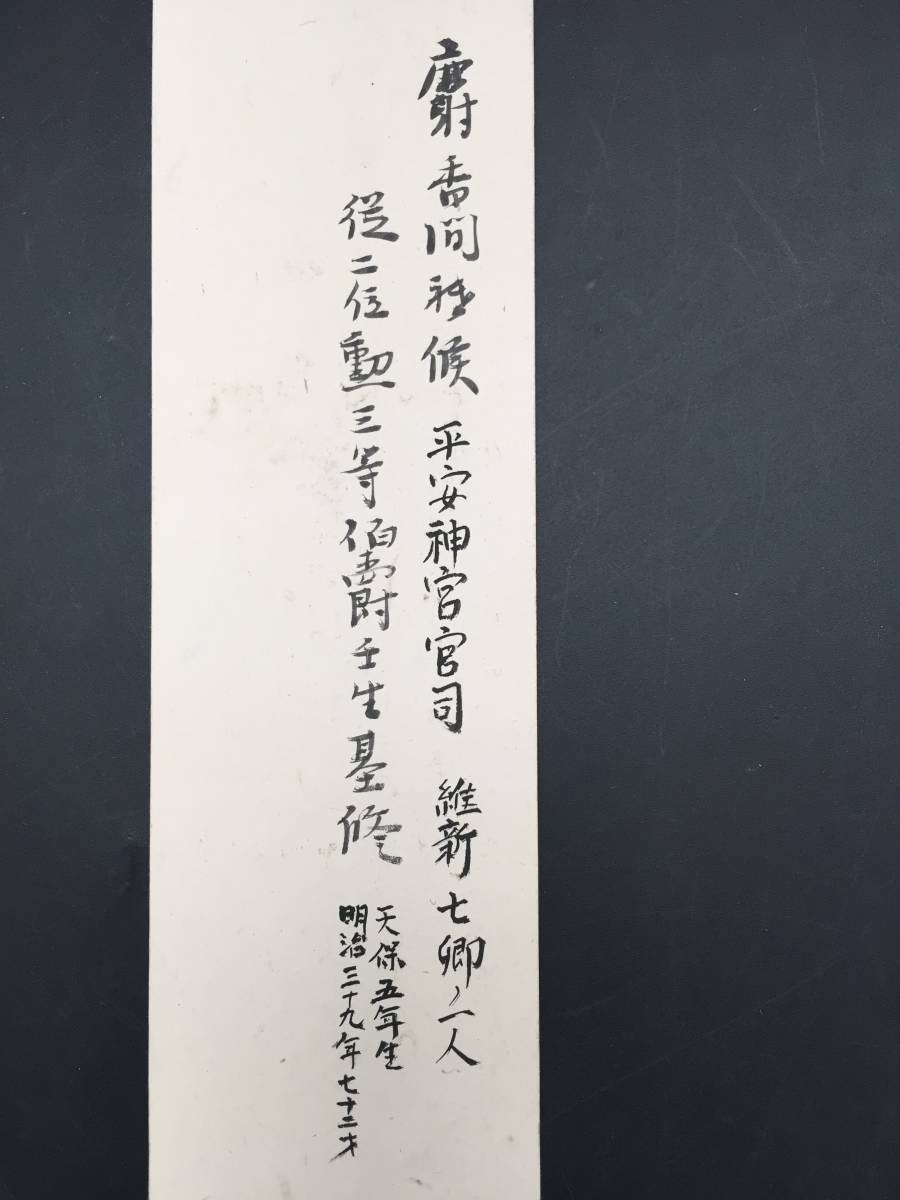 麝香間祗候 平安神宮宮司 維新七卿ノ一人
従二位勲三等伯爵壬生基修
天保五年生
明治三十九年七十二才